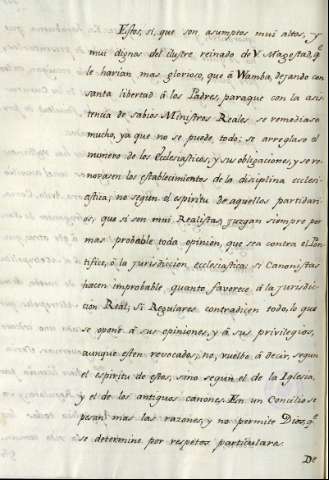 Estos, si, que son asumptos mui altos, y
mui dignos del ilustre reinado de V. Magestad, q.e
le harian mas glorioso, que à Wamba, dejando con
santa libertad à los Padres, paraque con la asis
tencia de sabios Ministros Reales se remediase
mucho, ya que no se puede, todo; se arreglase el
numero de los Ecclesiasticos, y sus obligaciones, y se re
novasen los establecimientos de la disciplina eccles
iastica; no según el espiritu de aquellos partida
rios, que si son mui Realistas, juzgan siempre por
mas probable toda opinion, que sea contra el Pon
tifice, ò la jurisdiccion ecclesiastica: si Canonistas
hacen improbable quanto favorece à la jurisdic
ción Real; Si Regulares contradicen todo, lo que
se opone à sus opiniones, y à sus privilegios,
aunque esten revocados; no, vuelbo à decir, segun
el espiritu de estos, sino segun el de la Iglesia,
y el de los antiguos canones. En un Concilio se
pesan mas las razones, y no permite Dios, q.e
se determine por respetos particulares.
De